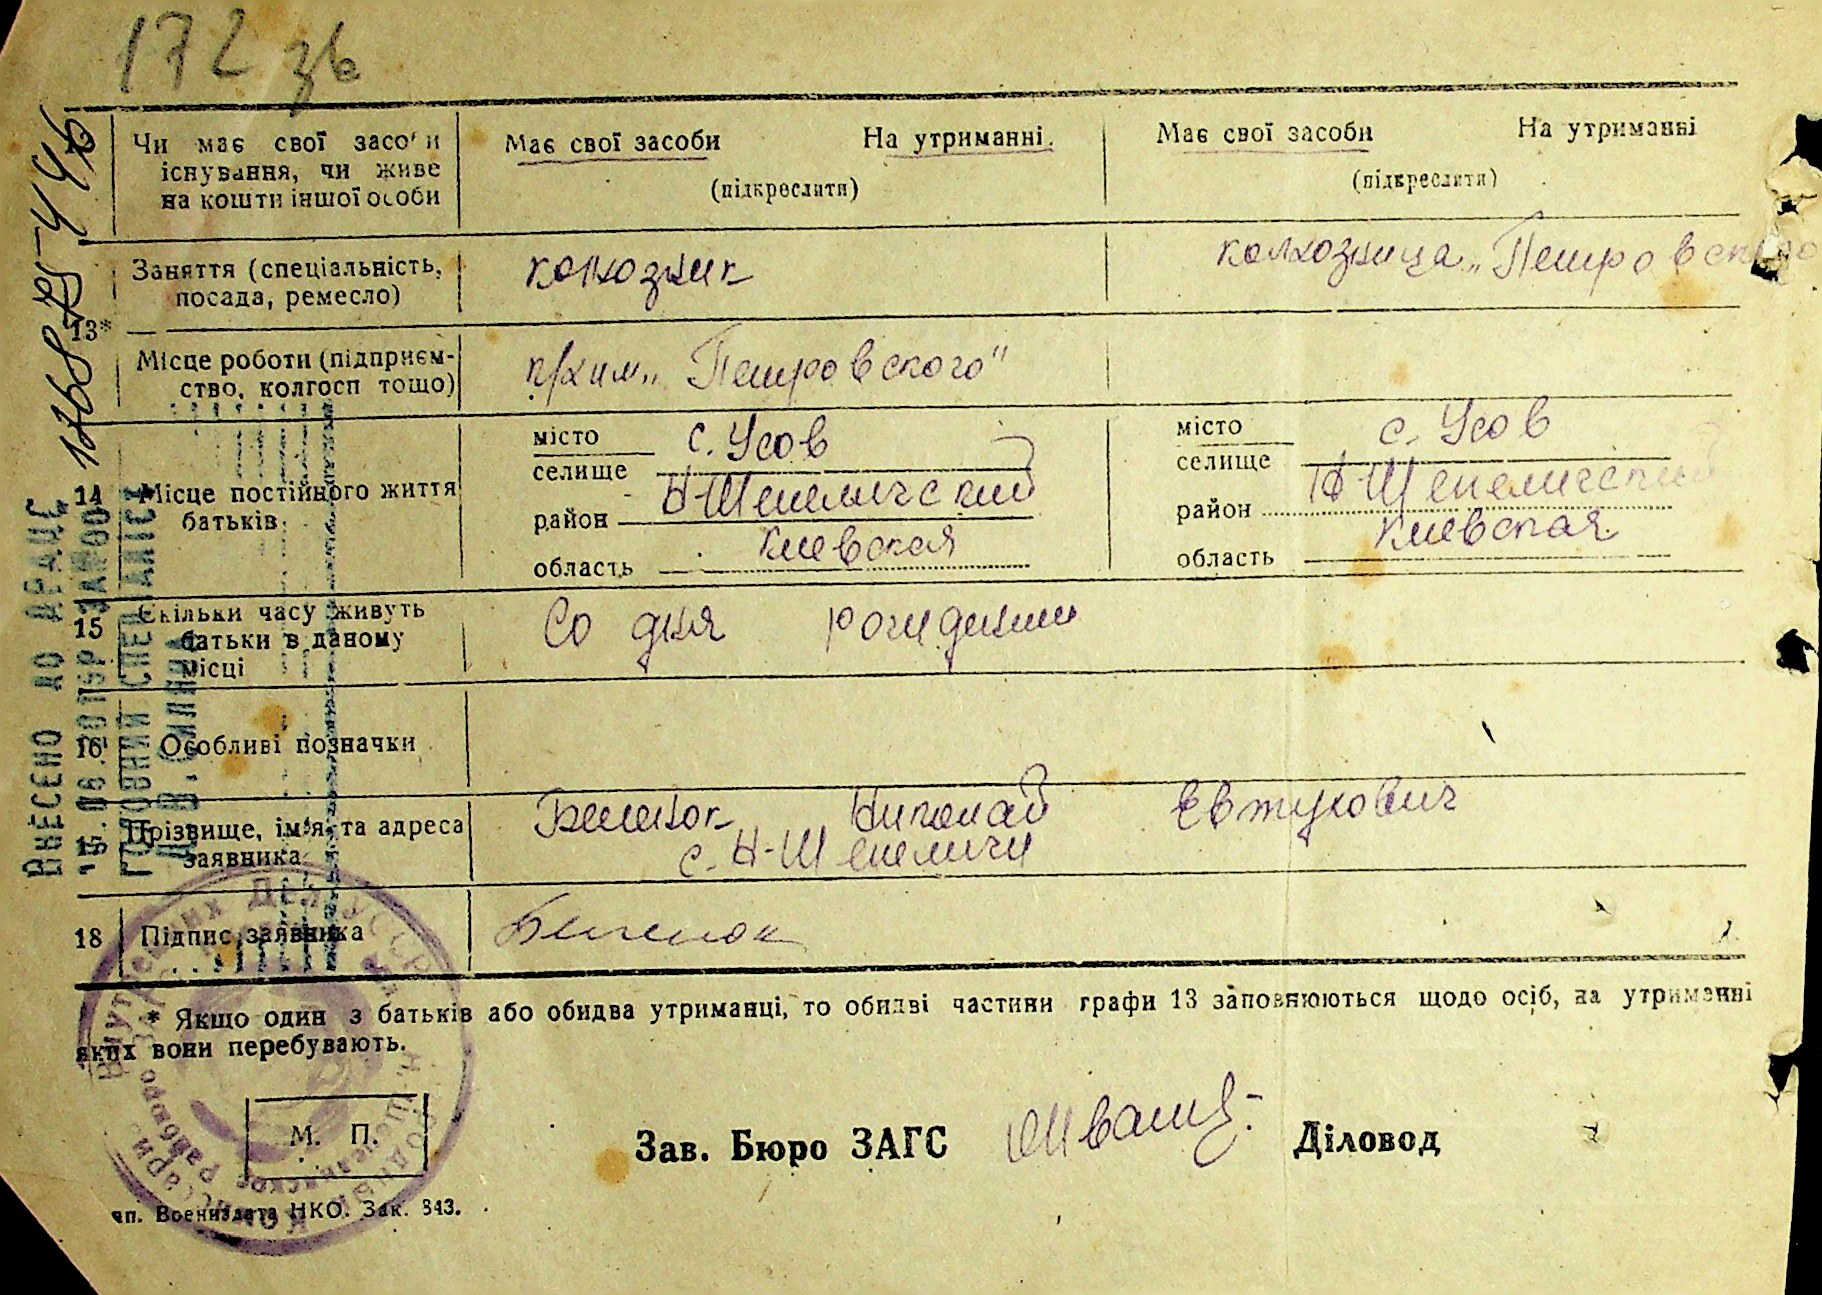 172 зв
Чи має свої засоби
існування, чи живе
на кошти іншої особи
Має свої засоби На утриманні.
(підкреслити)
Має свої засоби На утриманні
(підкреслити)
13*
Заняття (спеціальність,
посада, ремесло)
колхозник
колхозница „Петровского
Місце роботи (підприєм-
ство, колгосп тощо)
к/х им. „Петровского"
14 Місце постійного життя
батьків
місто
селище
с. Усов
район Н-Шепеличский
область Киевская
місто
селище
с. Усов
район Н-Шепеличский
область Киевская
15 Скільки часу живуть
батьки в даному
місці
Со дня рождения
16 Особливі позначки
Прізвище, ім'я та адреса
заявника
Николай Евтухович
с. Н-Шепеличи
18 Підпис заявника
* Якщо один з батьків або обидва утриманці, то обидві частини графи 13 заповнюються щодо осіб, на утриманні
яких вони перебувають.
М. П.
Зав. Бюро ЗАГС Діловод
тип. Воениздата НКО. Зак. 843.
ВНЕСЕНО ДО ДРАЦС
ГОЛОВНИЙ СПЕЦІАЛІСТ